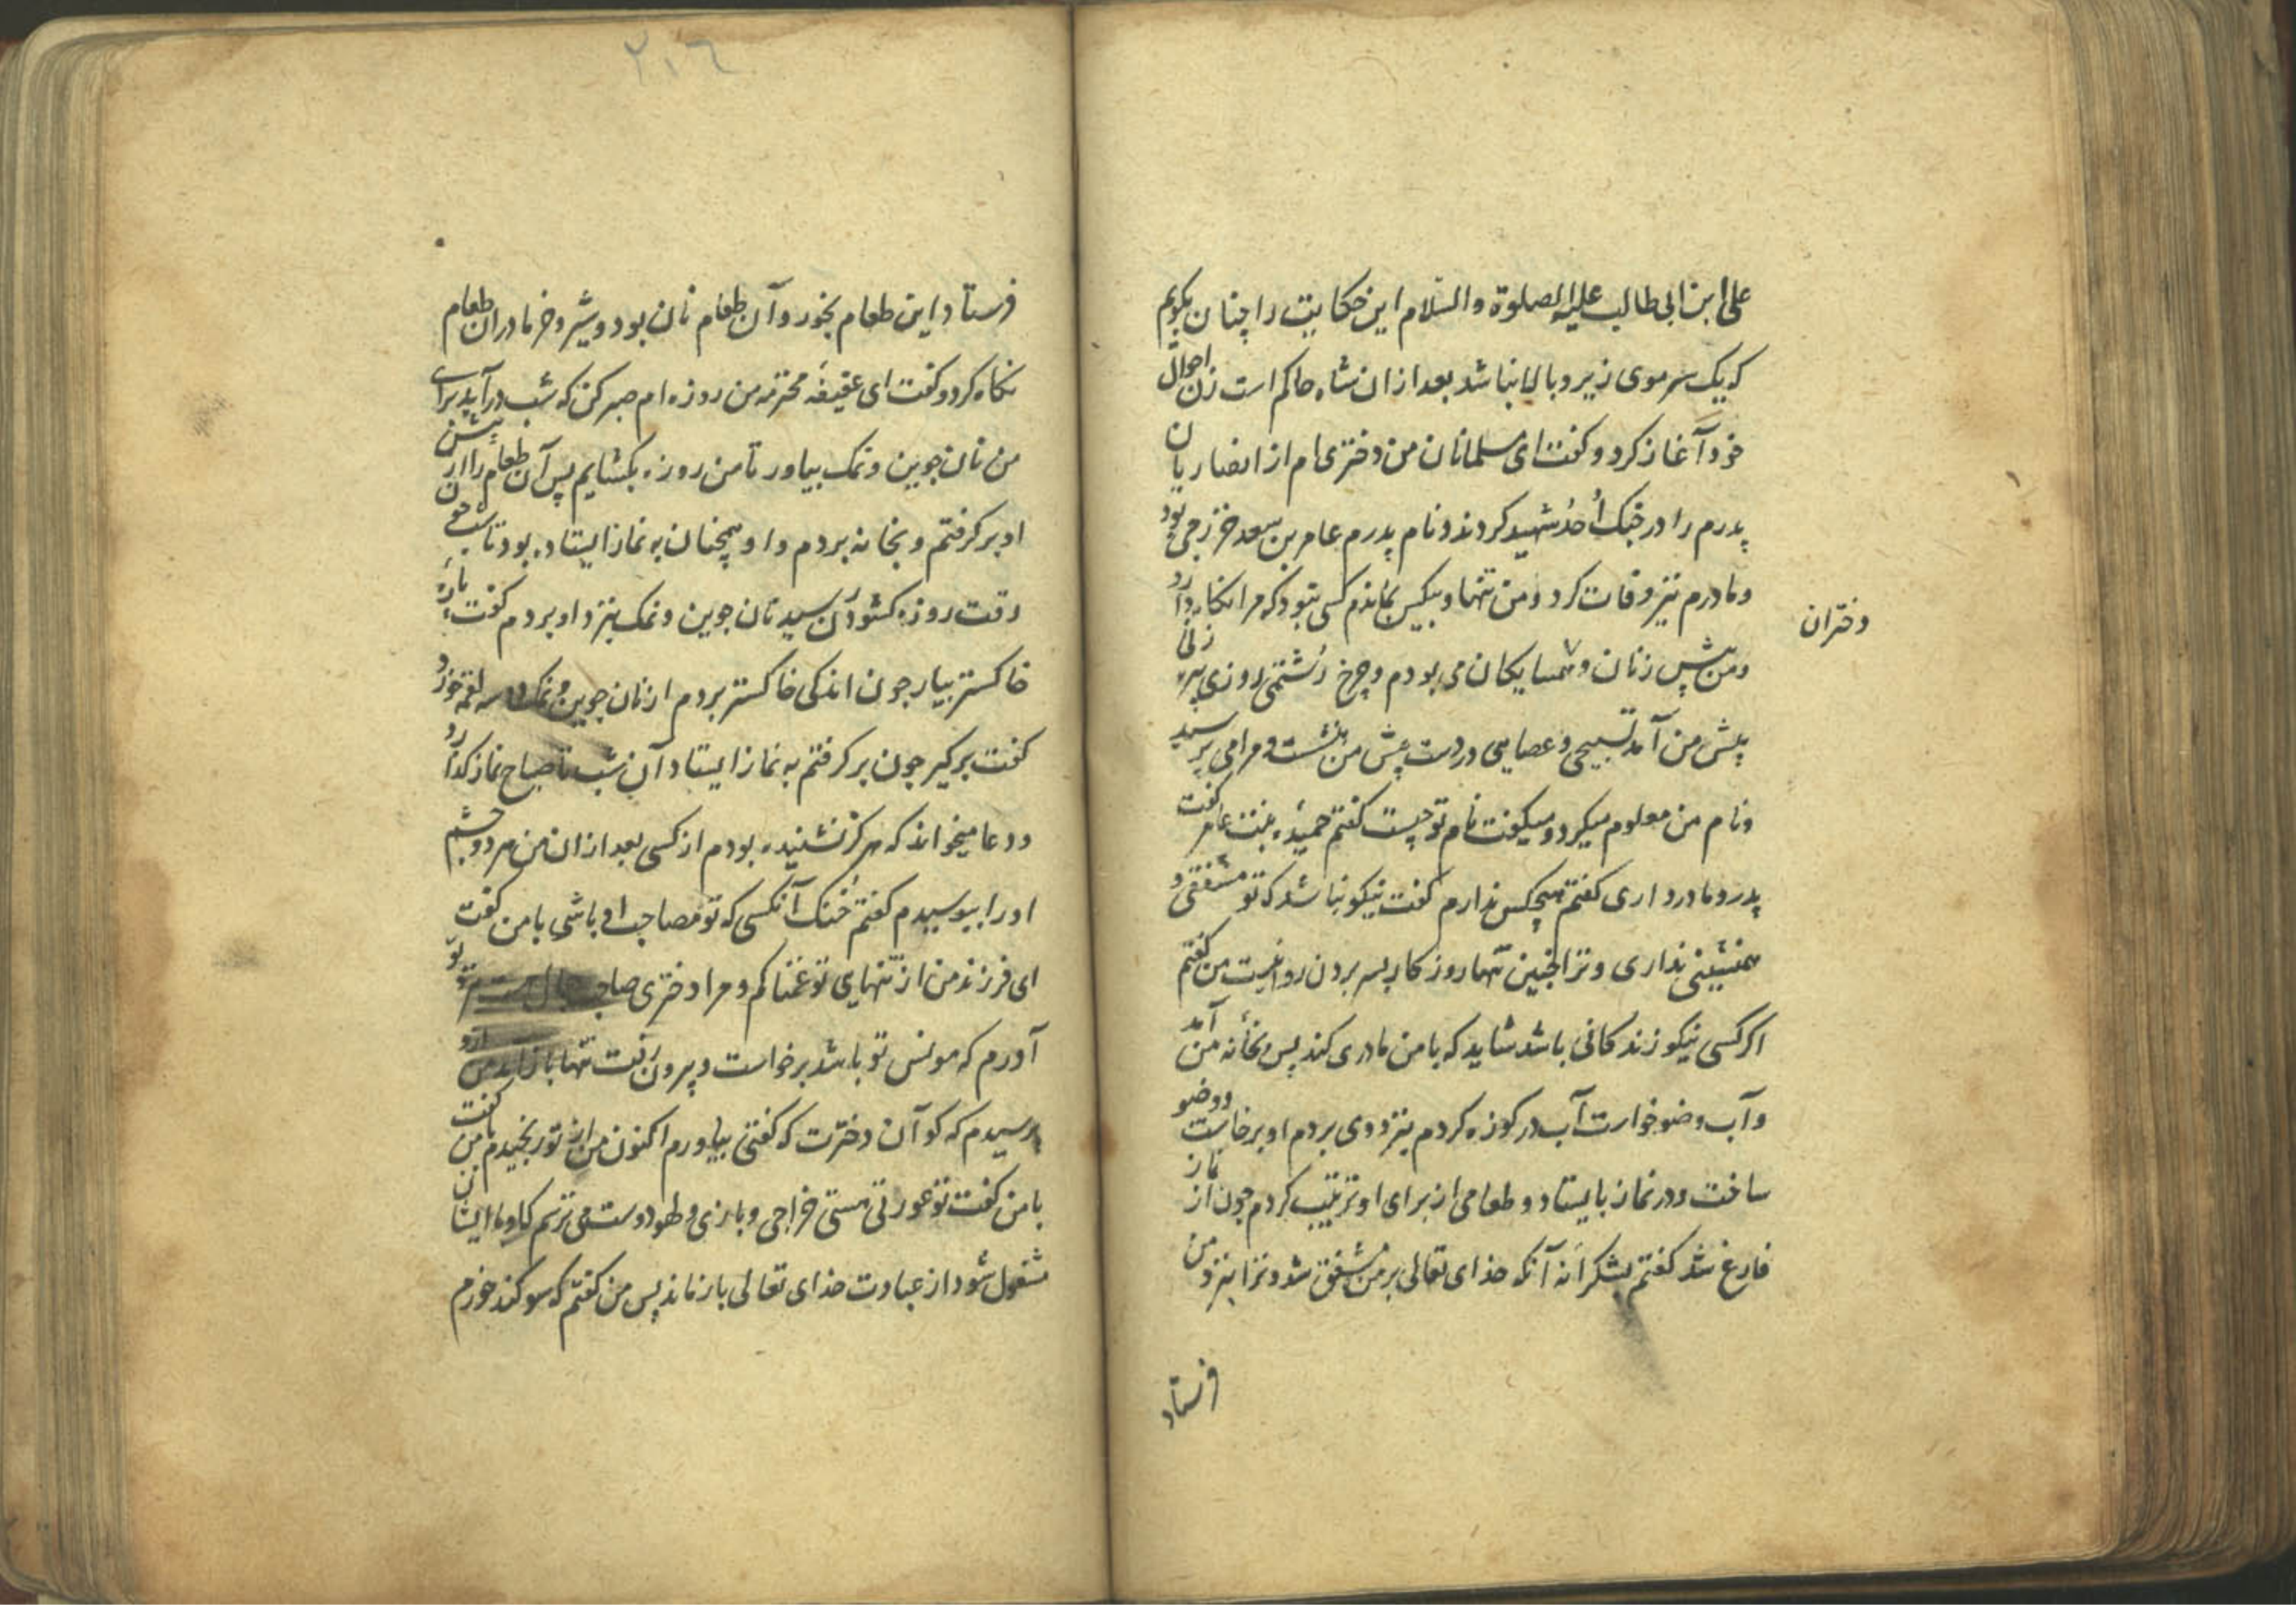 علی ابن ابی طالب علیه الصلوة والسّلام این حکایت را چنان بکویم
که یک سر موی زیر و بالا نباشد بعد از ان شاه حاکم است زن احوال
خود آغاز کرد و کفت ای مسلمانان من دختری ام از انصاریان
پدرم را در جنک اُحُد شهید کردند و نام پدرم عامر بن سعد خزرجی بود
و مادرم نیز وفات کرد و من تنها و بیکس بماندم کسی نبود که مرا نکاه دارد
دختران
و من پیش زنان و همسایکان می بودم و چرخ رشتمی روزی پیره زنی
پیش من آمد تسبیحی و عصایی در دست پیش من بنشست و مرا می پرسید
و نام من معلوم میکرد و میکفت نام تو چیست کفتم حمیده بنت عامر کفت
پدر و مادر داری کفتم هیچکس ندارم کفت نیکو نباشد که تو مشفقی و
همنشینی نداری و ترا اینچنین تنها روزکار بسر بردن روا نیست من کفتم
اکر کسی نیکو زندکانی باشد شاید که با من مادری کند پس بخانه من آمد
و آب وضو خواست آب در کوزه کردم بنزد وی بردم او برخاست و وضو
ساخت و در نماز بایستاد و طعامی از برای او ترتیب کردم چون از نماز
فارغ شد کفتم بشکرانه آنکه خدای تعالی بر من مشفق شد و ترا بنزد من
فرستاد
٢٠٦
فرستاد این طعام بخور و آن طعام نان بود و شیر و خرما در ان طعام
نکاه کرد و کفت ای عفیفهٔ محترمه من روزه ام صبر کن که شب در آید برای
من نان جوین و نمک بیاور تا من روزه بکشایم پس آن طعام را از پیش
او بر کرفتم و بخانه بردم و او همچنان به نماز ایستاده بود تا شب چون
وقت روزه کشودن رسید نان جوین و نمک بنزد او بردم کفت پاره
خاکستر بیار چون اندکی خاکستر بردم از نان جوین و نمک سه لقمه خورد
کفت بر کیر چون بر کرفتم به نماز ایستاد آن شب تا صباح نماز کذارد
و دعا میخواند که هرکز نشنیده بودم از کسی بعد از ان من هر دو چشم
او را ببوسیدم کفتم خُنک آنکسی که تو مصاحب او باشی با من کفت
ای فرزند من از تنهایی تو غمناکم و مرا دختری صاحب جمال هست بر تو
آورم که مونس تو باشد برخواست و بیرون رفت تنها باز آمد من ازو
پرسیدم که کو آن دخترت که کفتی بیاورم اکنون من از تو رنجیدم با من کفت
با من کفت تو عورتی هستی خراجی و بازی و لهو دوست می ترسم که او با ایشان
مشغول شود از عبادت خدای تعالی باز ماند پس من کفتم که سوکند خورم